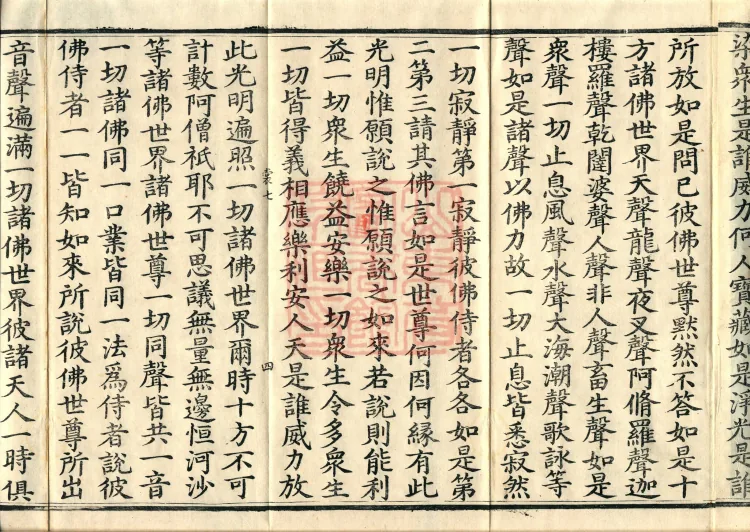 染衆生是誰威力何人寶藏如是淨光是誰
所放如是問已彼佛世尊默然不答如是十
方諸佛世界天聲龍聲夜叉聲阿脩羅聲迦
樓羅聲乾闥婆聲人聲非人聲畜生聲如是
衆聲一切止息風聲水聲大海潮聲歌詠等
聲如是諸聲以佛力故一切止息皆悉寂然
一切寂靜第一寂靜彼佛侍者各各如是第
二第三請其佛言如是世尊何因何緣有此
光明惟願說之惟願說之如來若說則能利
益一切衆生饒益安樂一切衆生令多衆生
一切皆得義相應樂利安人天是誰威力放
裳七 四
此光明遍照一切諸佛世界爾時十方不可
計數阿僧祇耶不可思議無量無邊恒河沙
等諸佛世界諸佛世尊一切同聲皆共一音
一切諸佛同一口業皆同一法爲侍者說彼
佛侍者一一皆知如來所說彼佛世尊所出
音聲遍滿一切諸佛世界彼諸天人一時俱